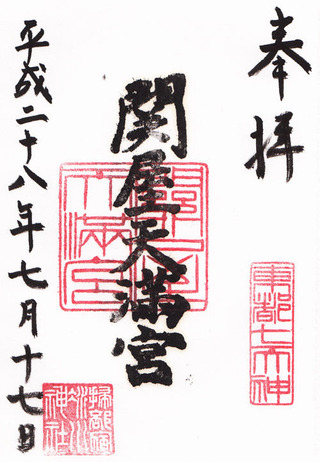 奉拝
東都七天神
関屋天満宮
平成二十八年七月十七日